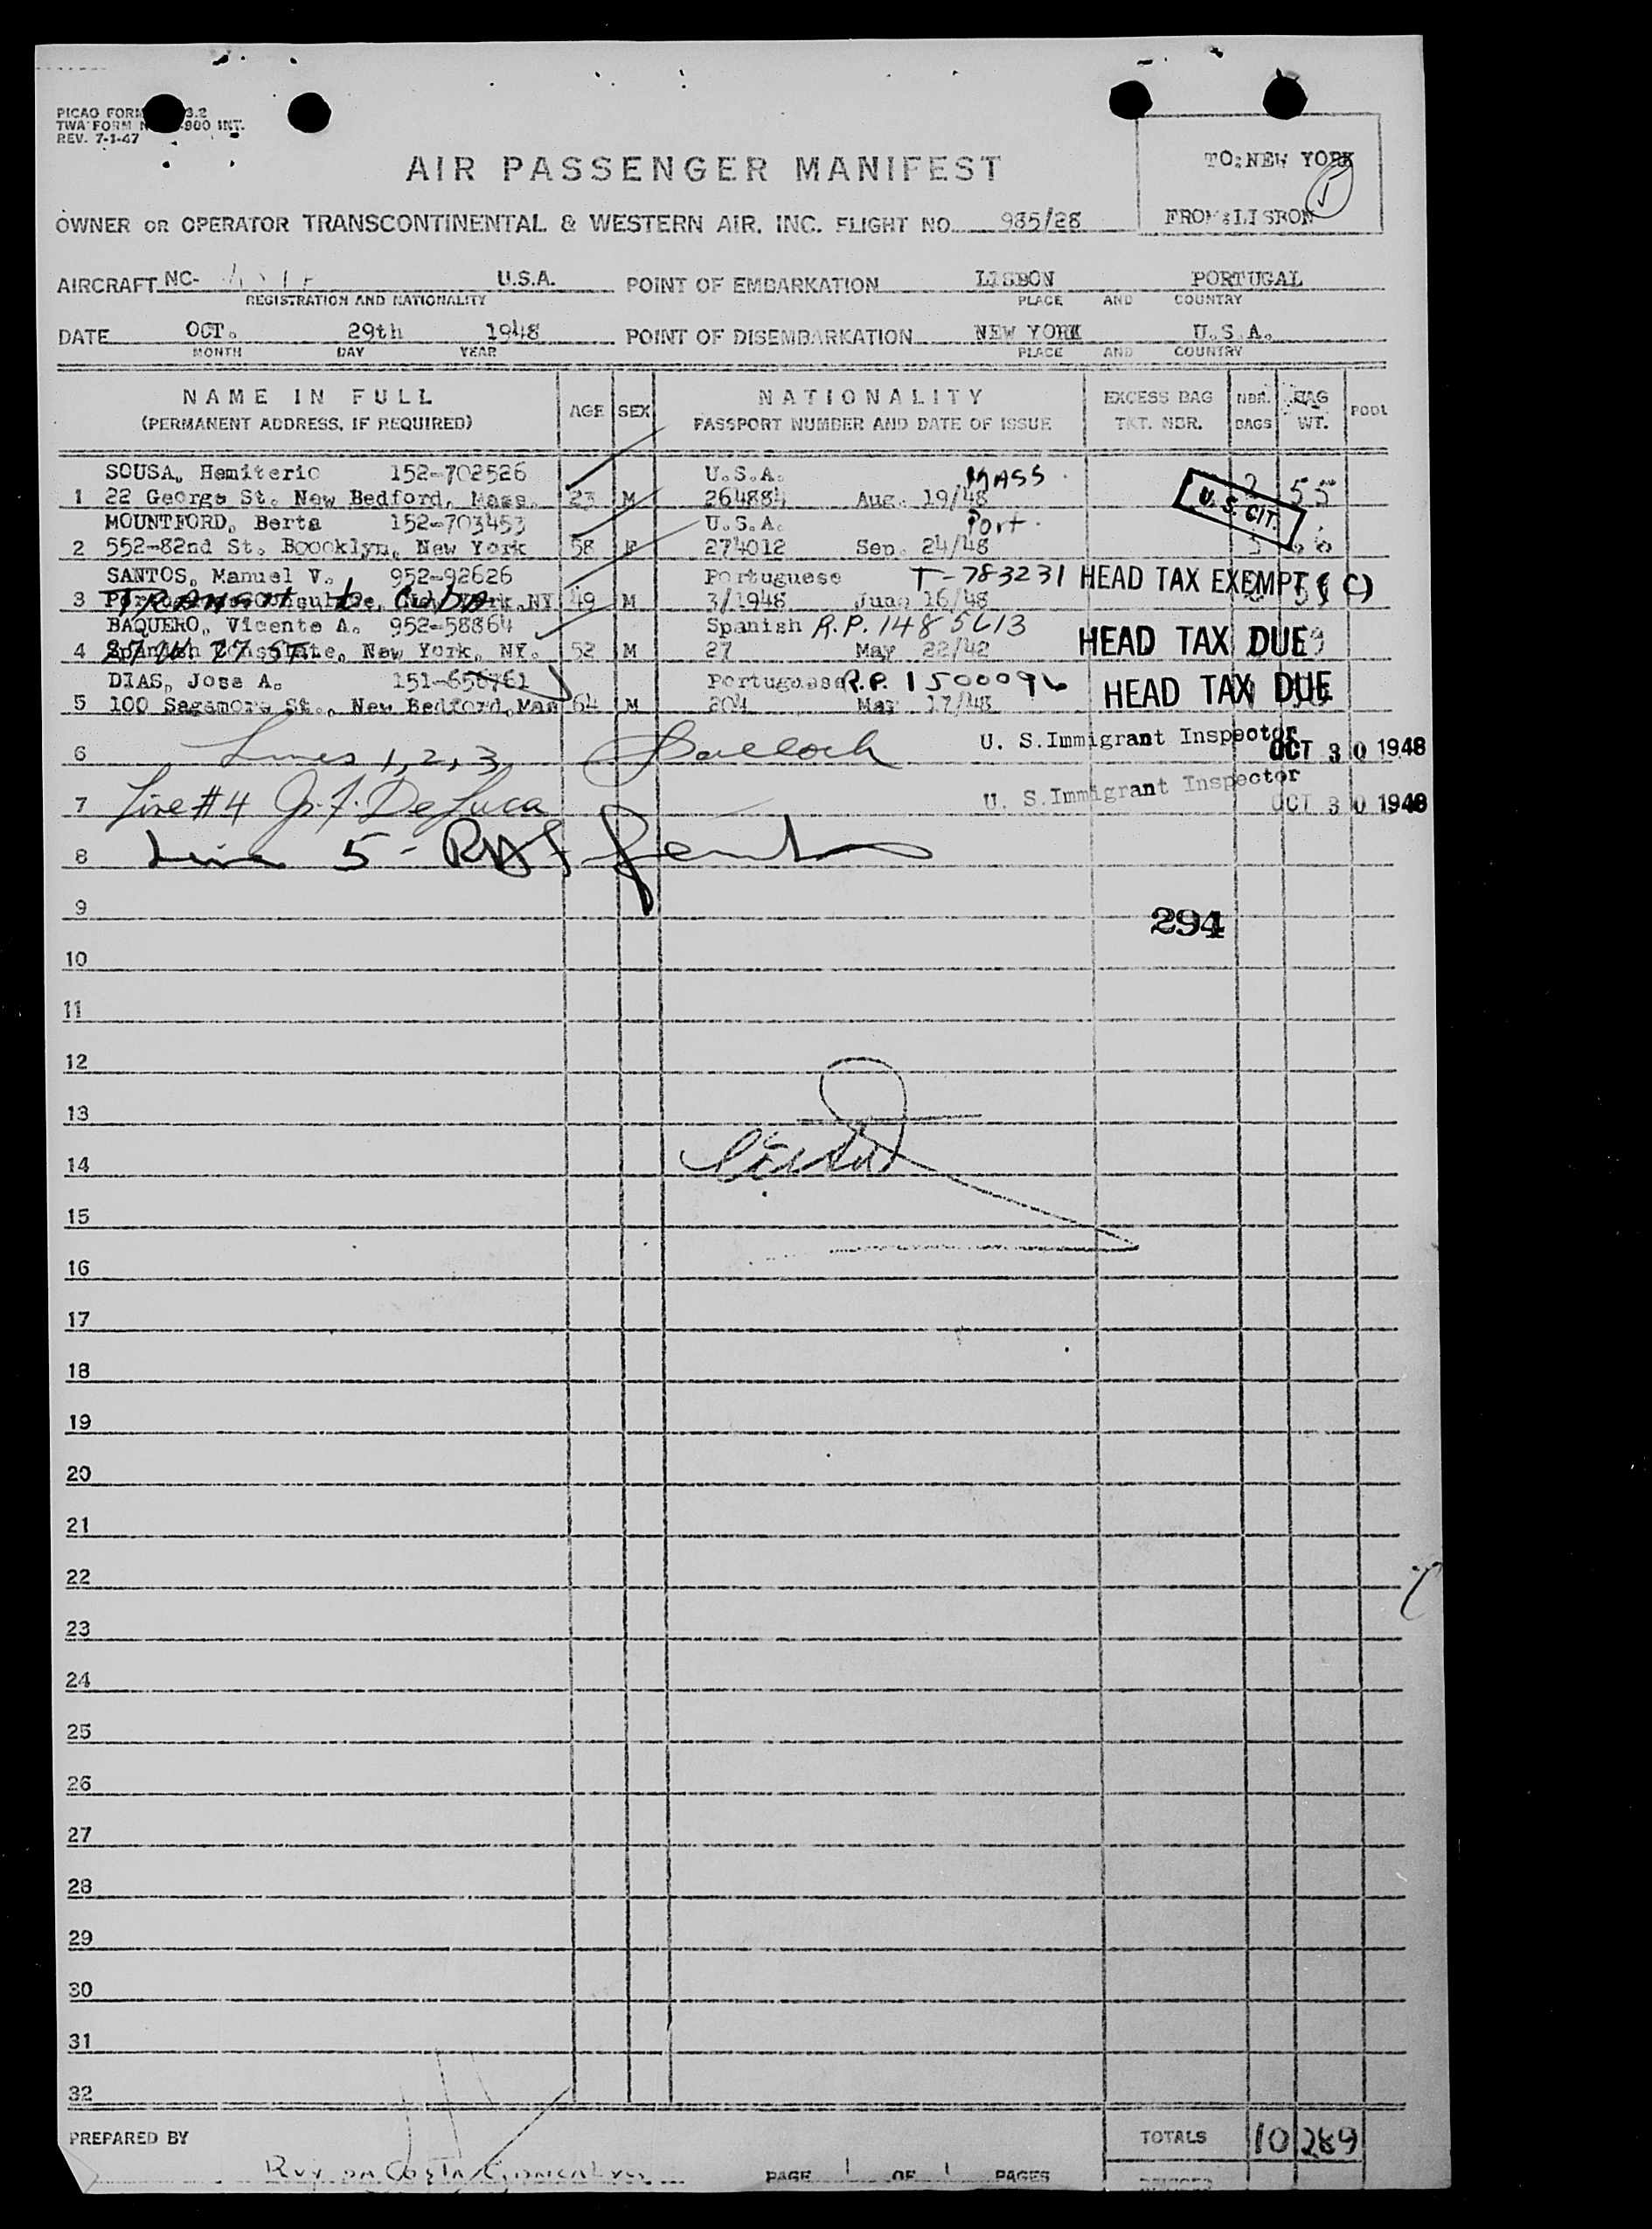 PICAO FORM 3.2
TWA FORM N -900 INT.
REV. 7-1-47
AIR PASSENGER MANIFEST
TO:NEW YORK
FROM:LISBON
OWNER OR OPERATOR TRANSCONTINENTAL & WESTERN AIR, INC. FLIGHT NO. 985/28
AIRCRAFT NC- U.S.A. POINT OF EMBARKATION LISBON PORTUGAL
REGISTRATION AND NATIONALITY PLACE AND COUNTRY
DATE OCT. 29th 1948 POINT OF DISEMBARKATION NEW YORK U.S.A.
MONTH DAY YEAR PLACE AND COUNTRY
NAME IN FULL AGE SEX NATIONALITY EXCESS BAG NBR. BAG POOL
(PERMANENT ADDRESS, IF REQUIRED) PASSPORT NUMBER AND DATE OF ISSUE TKT. NBR. BAGS WT.
SOUSA, Hemiterio 152-702526 U.S.A. MASS.
1 22 George St. New Bedford, Mass. 23 M 264884 Aug. 19/48 2 55
U.S. CIT.
MOUNTFORD, Berta 152-703453 U.S.A. Port.
2 552-82nd St. Boooklyn, New York 58 F 274012 Sep. 24/48
SANTOS, Manuel V. 952-92626 Portuguese T-783231 HEAD TAX EXEMPT (C)
3 TRANSIT to CUBA NY 49 M 3/1948 June 16/48
BAQUERO, Vicente A. 952-58864 Spanish R.P. 1485613
4 New York, NY. 52 M 27 May 22/42 HEAD TAX DUE
DIAS, Jose A. 151-656761 Portuguese R.P. 1500096
5 100 Sagamore St., New Bedford, Mas 64 M 204 Mar 17/48 HEAD TAX DUE
6 Lines 1, 2, 3, U. S. Immigrant Inspector OCT 30 1948
7 Line #4 G. F. De Luca U. S. Immigrant Inspector OCT 30 1948
8 Line 5 -
9 294
10
11
12
13
14
15
16
17
18
19
20
21
22
23
24
25
26
27
28
29
30
31
32
PREPARED BY TOTALS 10 289
Ruy da Costa Goncalves PAGE 1 OF 1 PAGES